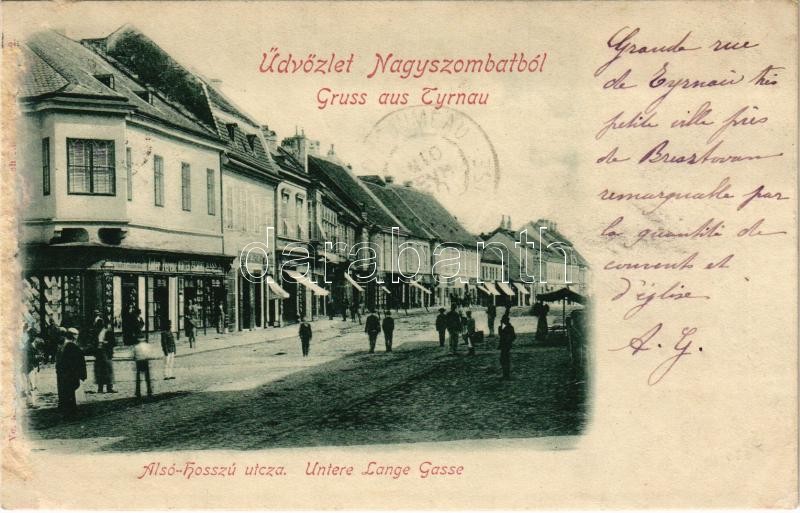 Üdvözlet Nagyszombatból
Gruss aus Tyrnau
Grande rue
de Tyrnau très
petite ville près
de Bresztovan
remarquable par
la quantité de
couvents et
d'église
A. G.
darabanth.com
Alsó-hosszú utcza. Untere Lange Gasse